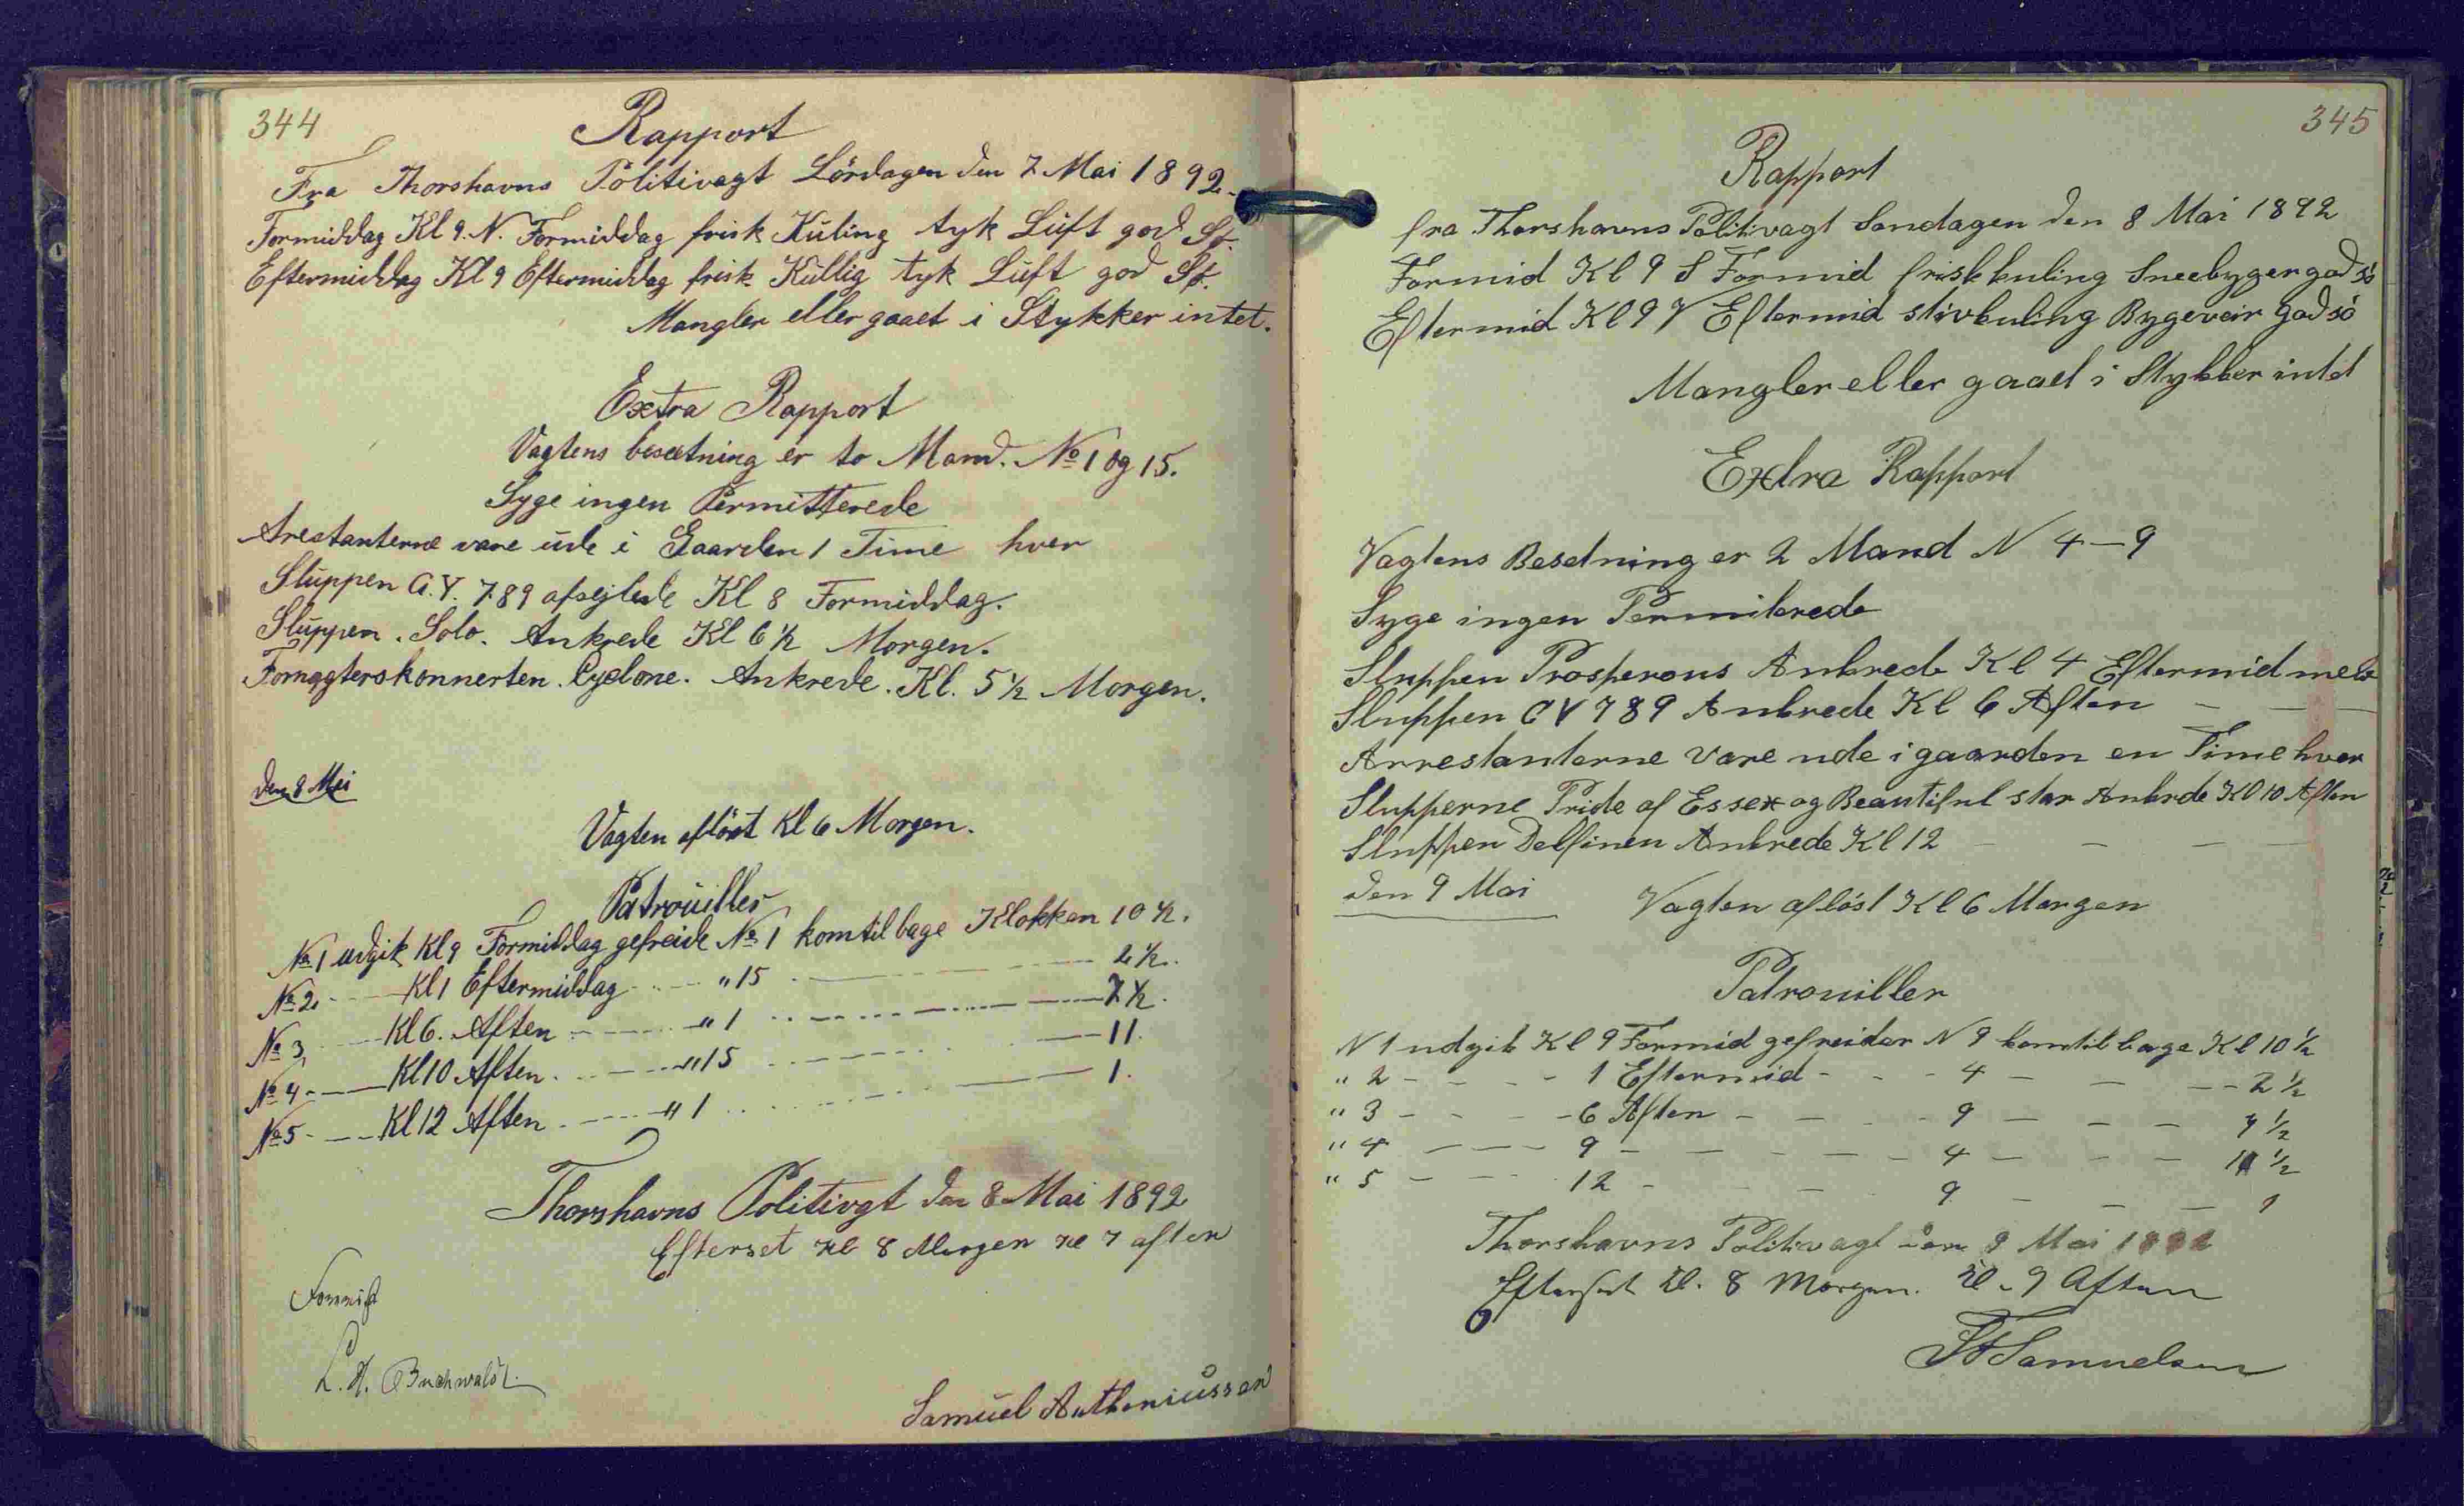 344
Rapport
Fra Thorshavns Politivagt Lördagen den 7 Mai 1892.
Formiddag Kl 9. N. Formiddag frisk Kuling tyk Luft god Sø.
Eftermiddag Kl 9 Eftermiddag frisk Kullig tyk Luft god Sø.
Mangler eller gaaet i Stykker intet.
Extra Rapport
Vagtens besætning er to Mand. No 1 og 15.
Syge ingen Permitterede
Arestanterne vare ude i Gaarden 1 Time hver
Sluppen G.Y. 789 afsejlede Kl 8 Formiddag.
Sluppen. Solo. Ankrede Kl 6 1/2 Morgen.
Fornagterskonnerten. Cyclone. Ankrede. Kl. 5 1/2 Morgen.
den 8 Mai
Vagten afløst Kl 6 Morgen.
Patrouiller
No 1 udgik Kl 9 Formiddag gefreide No 1 kom tilbage Klokken 10 1/2.
No 2 - — Kl 1 Eftermiddag - — " 15 — — 2 1/2.
No 3 — Kl 6. Aften - — " 1 — — 7 1/2.
No 4 - — Kl 10 Aften. - — " 15 — — 11.
No 5 - — Kl 12 Aften - — " 1 — — 1.
Thorshavns Politivgt den 8 Mai 1892
Efterset Kl 8 Morgen Kl 7 aften
L. H. Buchwaldt.
Samuel Antheniussen
345
Rapport
fra Thorshavns Politivagt Sondagen den 8 Mai 1892
Formid Kl 9 S Formid friskkuling Sneebyger god sö
Eftermid Kl 9 V Eftermid stivkuling Bygeveir god sö
Mangler eller gaaet i Stykker intet
Extra Rapport
Vagtens Besetning er 2 Mand N 4 — 9
Syge ingen Permiterede
Sluppen Prosperous Ankrede Kl 4 Eftermid
Sluppen GV 789 Ankrede Kl 6 Aften — — —
Arrestanterne vare ude i gaarden en Time hver
Slupperne Pride of Essex og Beautiful star Ankrde Kl 10 Aften
Sluppen Delfinen Ankrede Kl 12 — — — —
den 9 Mai
Vagten afløst Kl 6 Morgen
Patrouiller
N 1 udgik Kl 9 Formid gefreider N 9 kom tilbage Kl 10 1/2
" 2 - - - - 1 Eftermid - - - 4 — — - - 2 1/2
" 3 - - - - 6 Aften — - - - 9 — — — 7 1/2
" 4 — — - 9 — — — - — 4 — - — 11 1/2
" 5 — - - 12 - - — - 9 — — — 1
Thorshavns Politivagt den 9 Mai 1892
Efterset Kl. 8 Morgen. Kl. 9 Aften
Samuelsen